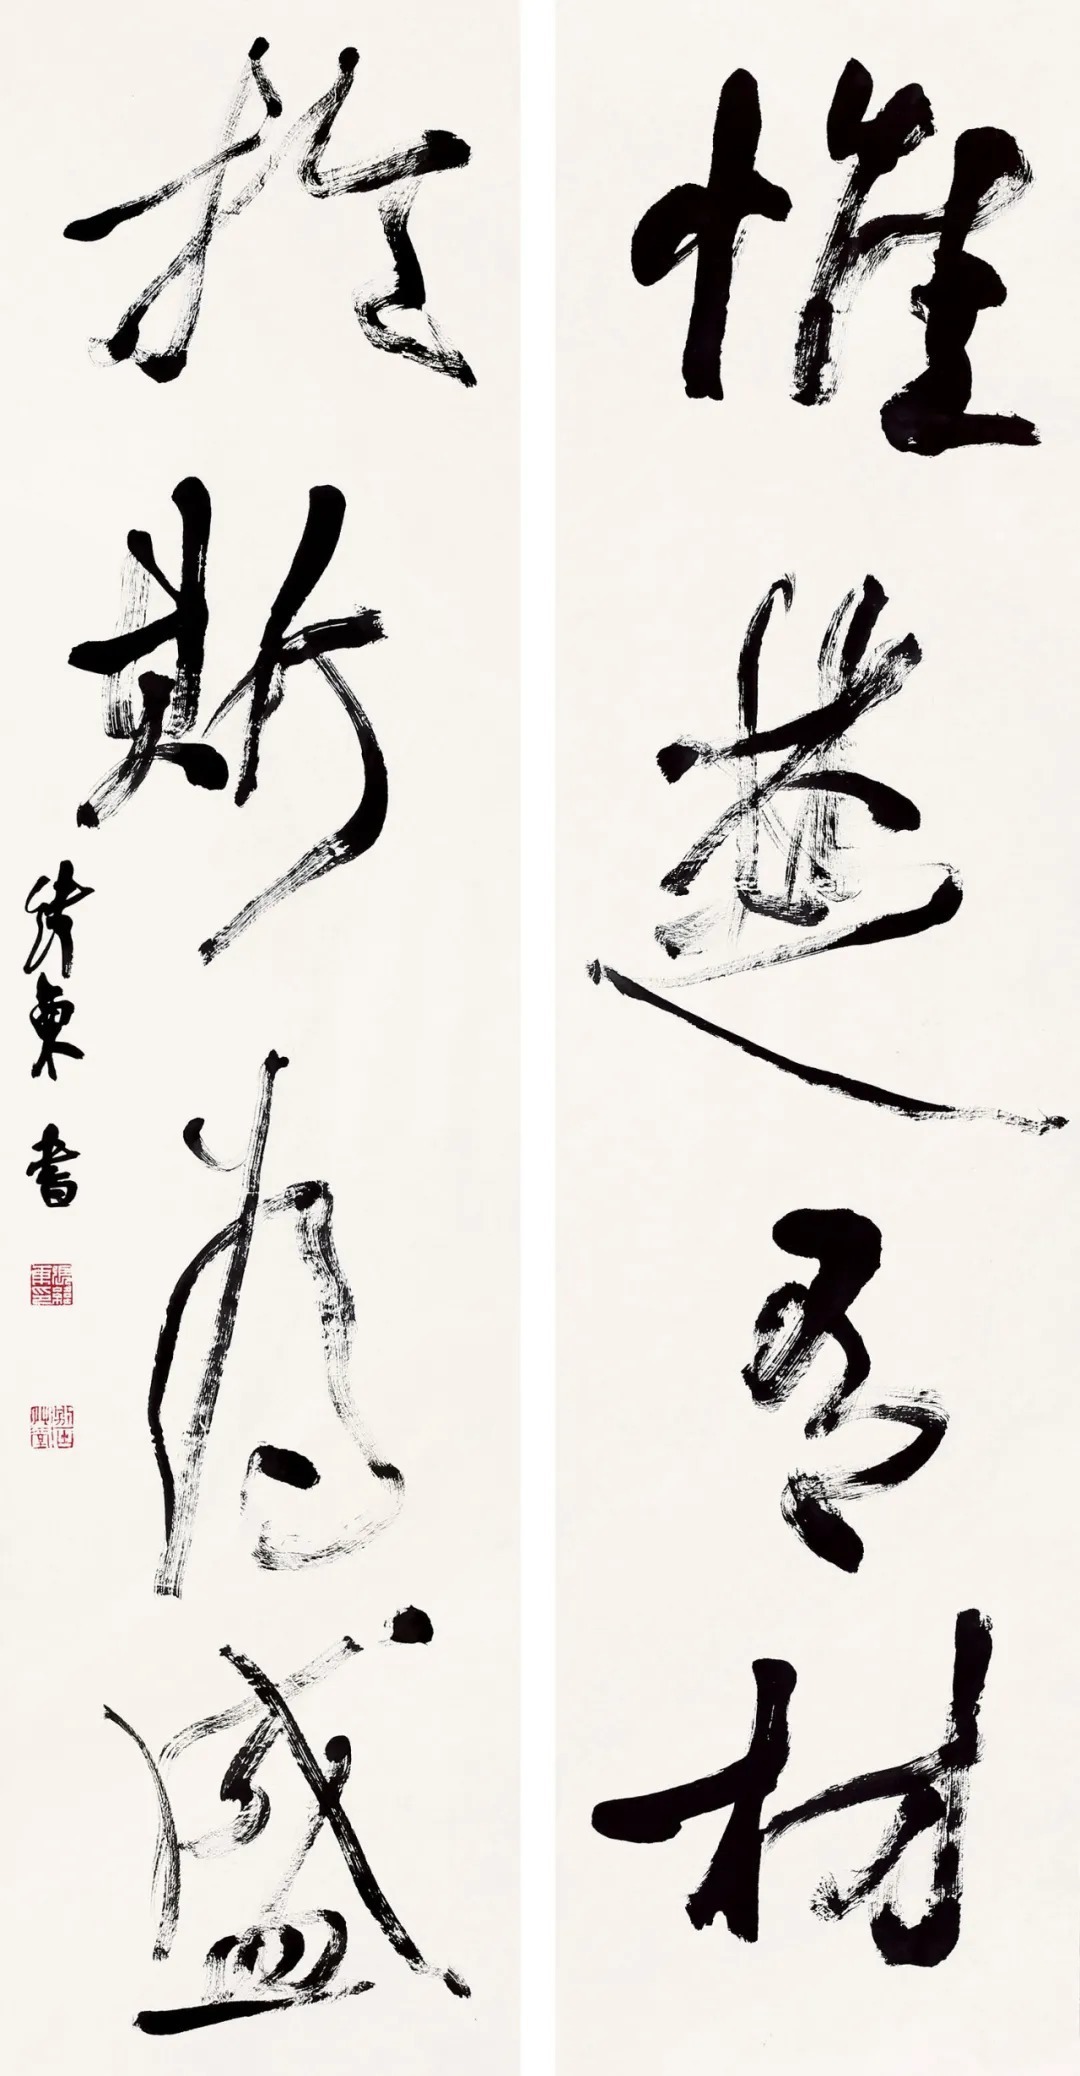 惟楚有材
於斯為盛
緯東書